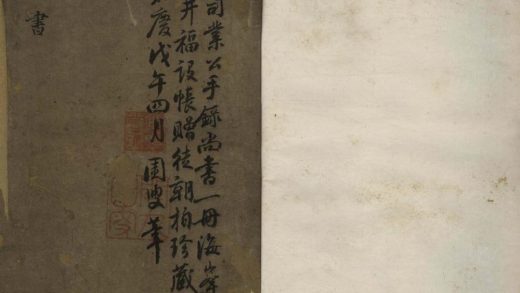 司業公手錄尚書一冊海
井福設帳贈徒朝柏珍藏
慶戊午四月周叟
書